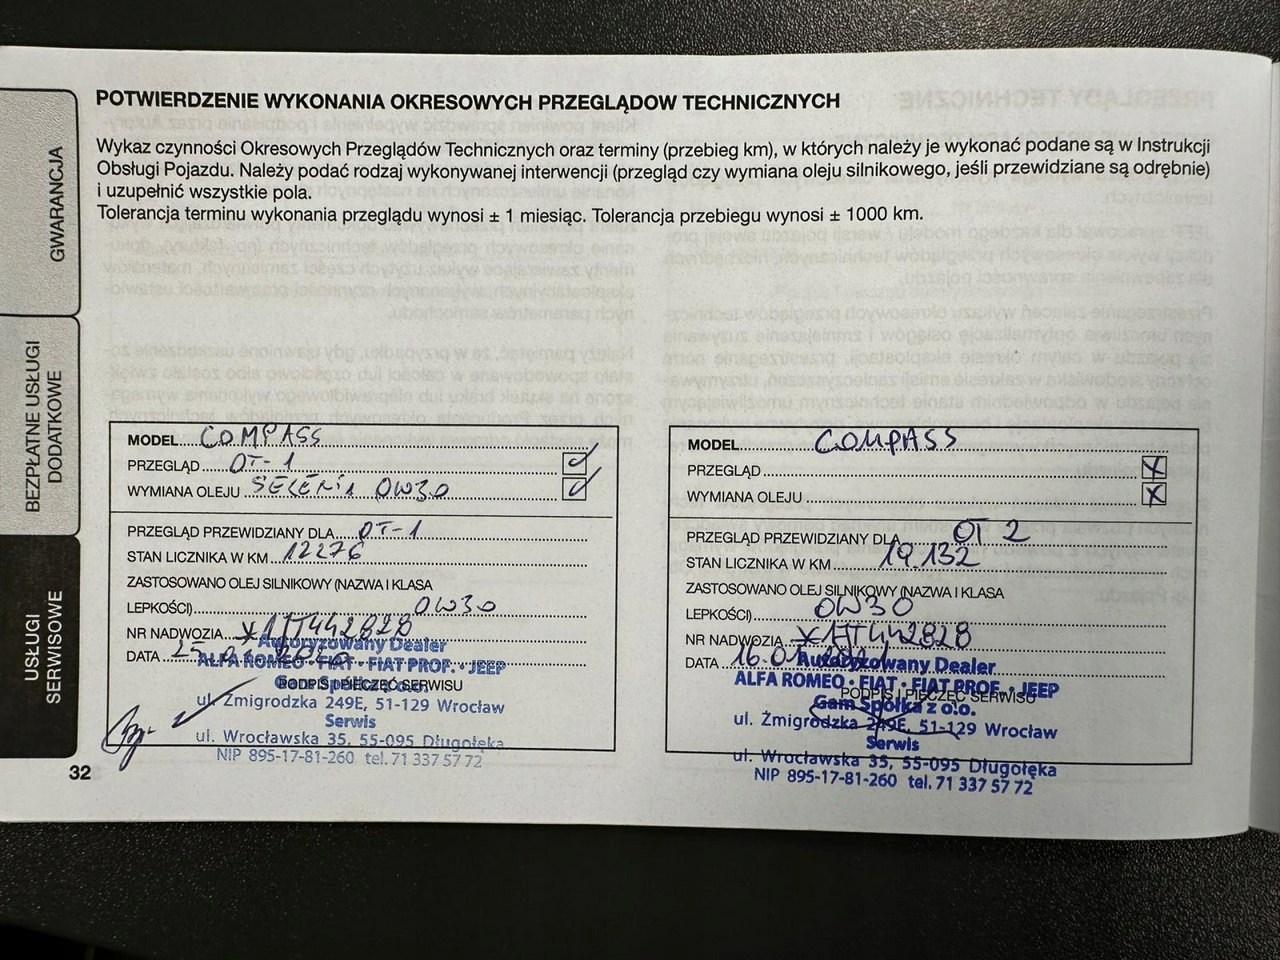 POTWIERDZENIE WYKONANIA OKRESOWYCH PRZEGLĄDOW TECHNICZNYCH
Wykaz czynności Okresowych Przeglądów Technicznych oraz terminy (przebieg km), w których należy je wykonać podane są w Instrukcji
Obsługi Pojazdu. Należy podać rodzaj wykonywanej interwencji (przegląd czy wymiana oleju silnikowego, jeśli przewidziane są odrębnie)
i uzupełnić wszystkie pola.
Tolerancja terminu wykonania przeglądu wynosi ± 1 miesiąc. Tolerancja przebiegu wynosi ± 1000 km.
GWARANCJA
BEZPŁATNE USŁUGI
DODATKOWE
USŁUGI
SERWISOWE
MODEL COMPASS
PRZEGLĄD OT-1
WYMIANA OLEJU SELENIA 0W30
PRZEGLĄD PRZEWIDZIANY DLA OT-1
STAN LICZNIKA W KM 12276
ZASTOSOWANO OLEJ SILNIKOWY (NAZWA I KLASA
LEPKOŚCI) 0W30
NR NADWOZIA
DATA
Autoryzowany Dealer
ALFA ROMEO • FIAT • FIAT PROF. • JEEP
PODPIS I PIECZĘĆ SERWISU
Gam Spółka z o.o.
ul. Żmigrodzka 249E, 51-129 Wrocław
Serwis
ul. Wrocławska 35, 55-095 Długołęka
NIP 895-17-81-260 tel. 71 337 57 72
32
MODEL COMPASS
PRZEGLĄD X
WYMIANA OLEJU X
PRZEGLĄD PRZEWIDZIANY DLA OT 2
STAN LICZNIKA W KM 19.132
ZASTOSOWANO OLEJ SILNIKOWY (NAZWA I KLASA
LEPKOŚCI) 0W30
NR NADWOZIA
DATA
Autoryzowany Dealer
ALFA ROMEO • FIAT • FIAT PROF. • JEEP
PODPIS I PIECZĘĆ SERWISU
Gam Spółka z o.o.
ul. Żmigrodzka 249E, 51-129 Wrocław
Serwis
ul. Wrocławska 35, 55-095 Długołęka
NIP 895-17-81-260 tel. 71 337 57 72